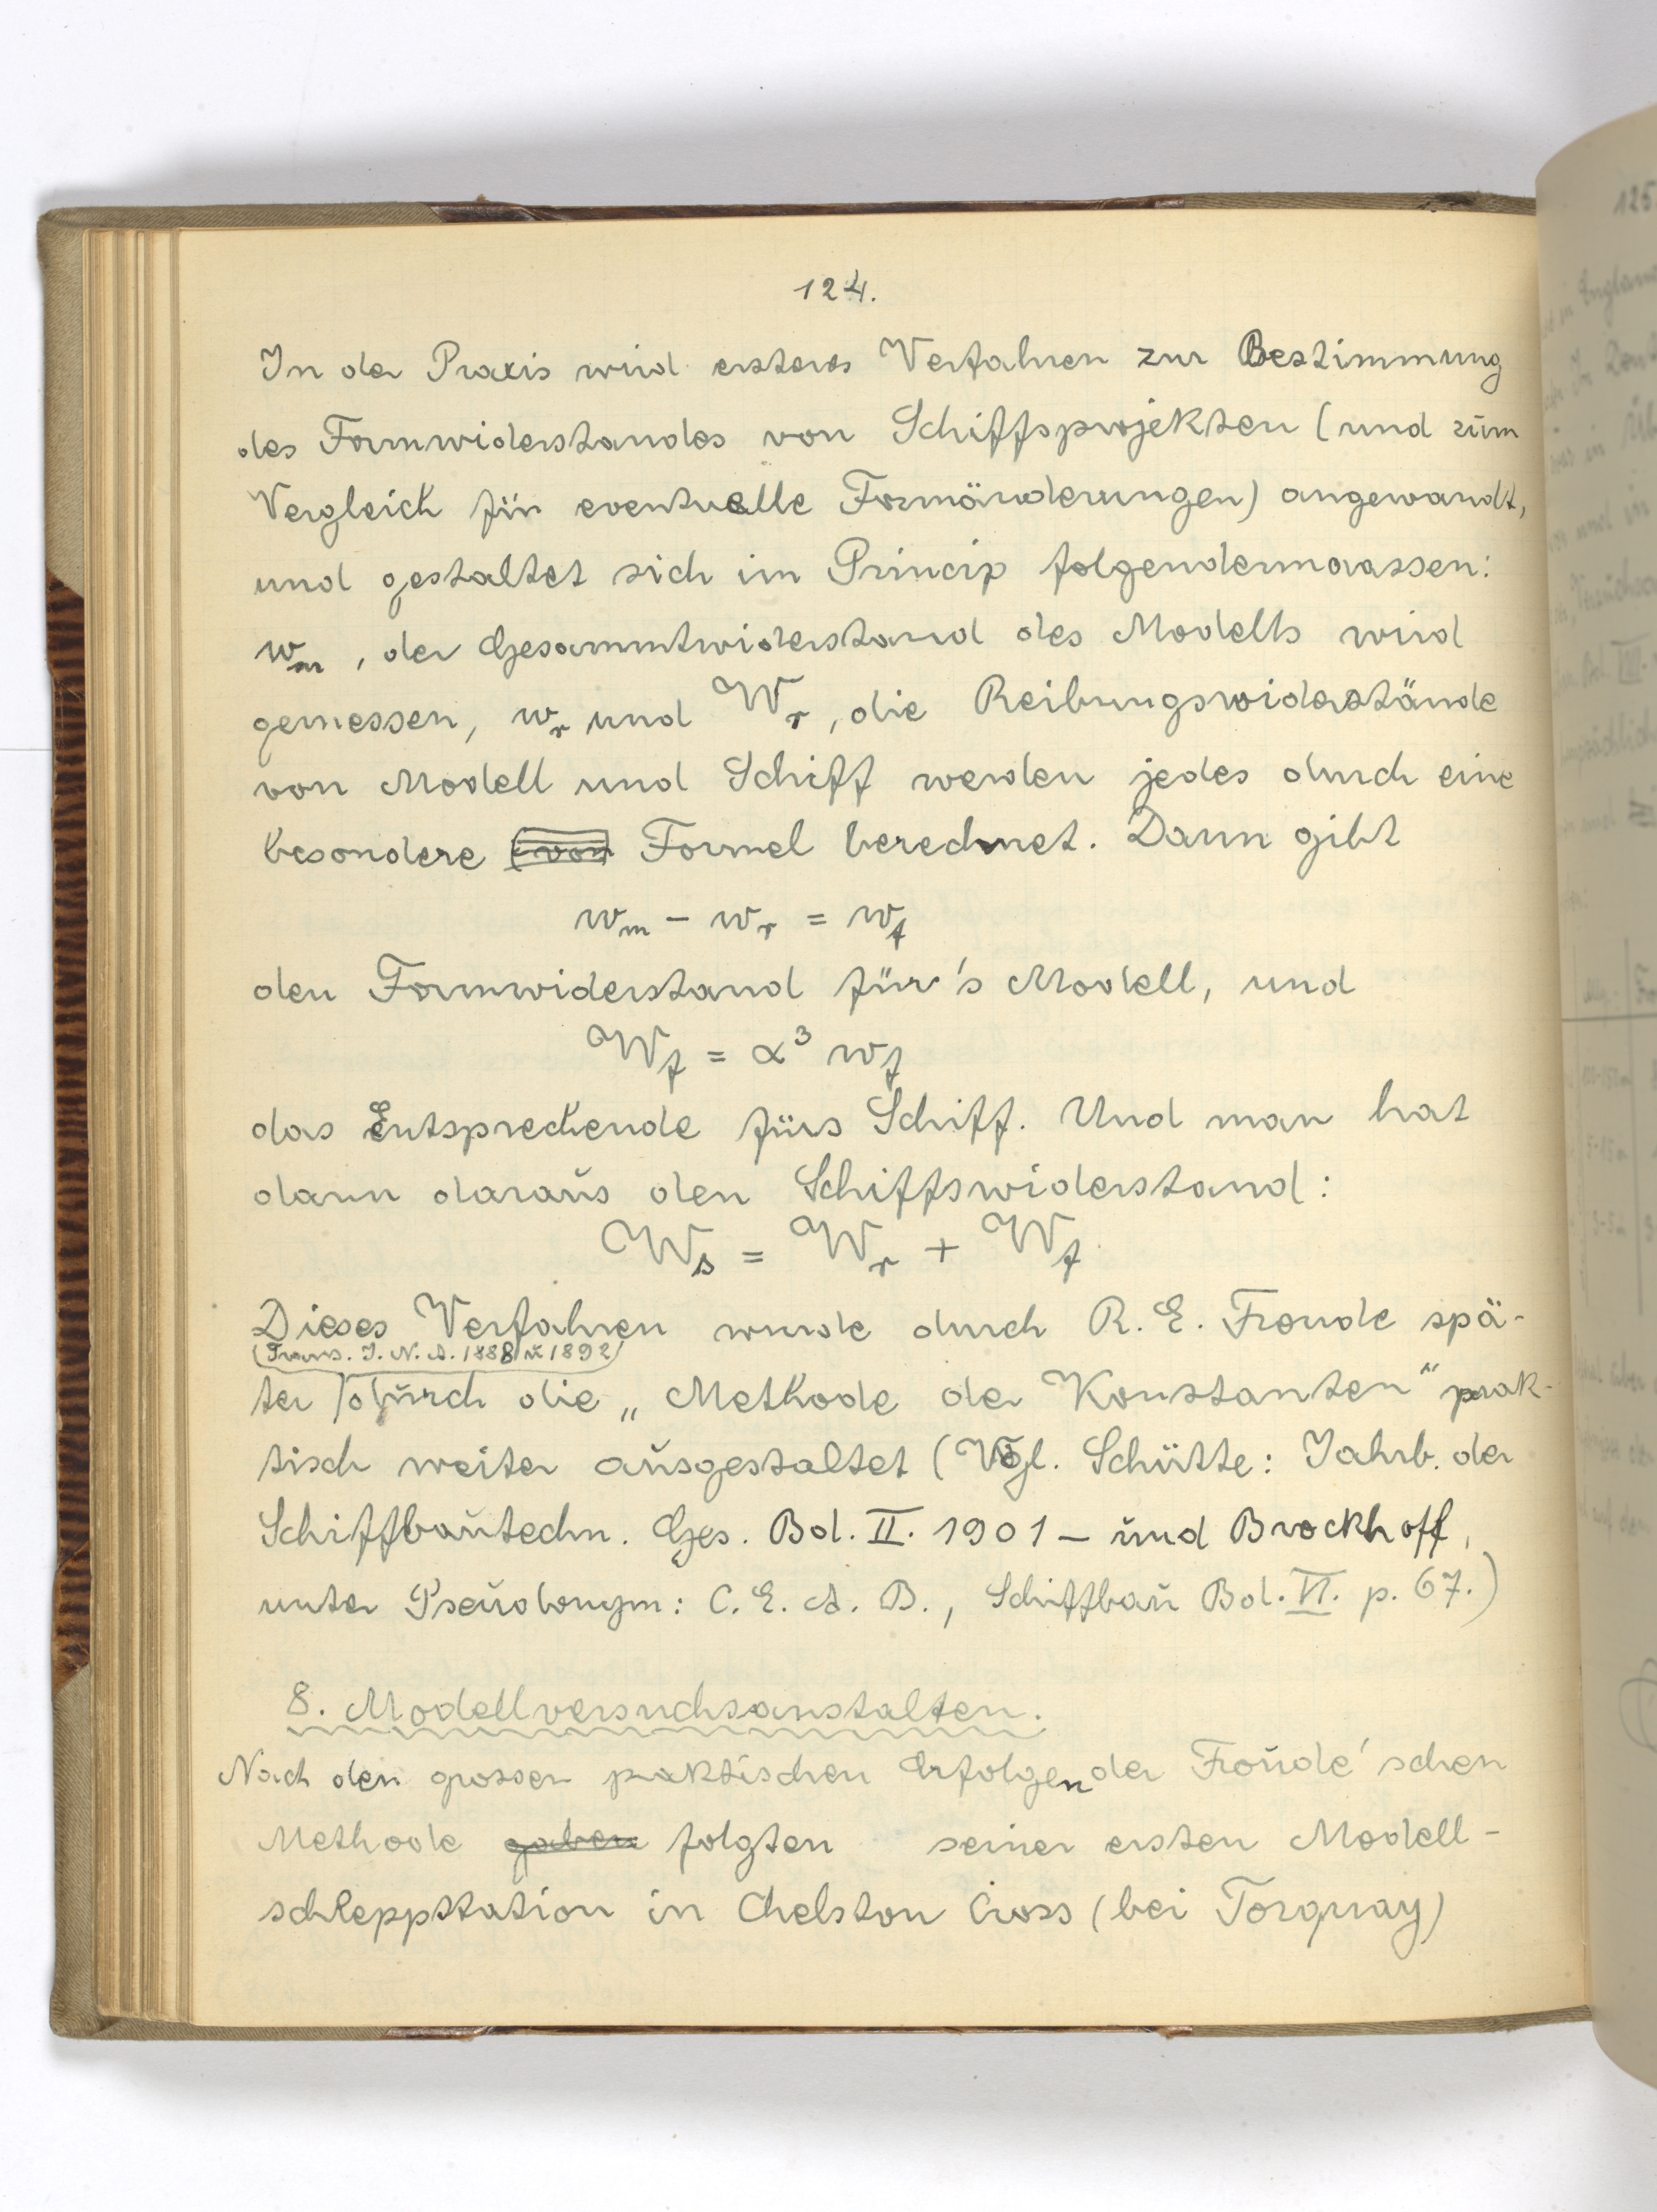 124.
In der Praxis wird ersteres Verfahren zur Bestimmung
des Formwiderstandes von Schiffsprojekten (und zum
Vergleich für eventuelle Formänderungen) angewandt,
und gestaltet sich im Princip folgendermaassen:
w_m, der Gesammtwiderstand des Modells wird
gemessen, w_r und W_r, die Reibungswiderstände
von Modell und Schiff werden jedes durch eine
besondere (von Formel berechnet. Dann gibt
w_m - w_r = w_f
den Formwiderstand für's Modell, und
W_f = α³ w_f
das Entsprechende fürs Schiff. Und man hat
dann daraus den Schiffswiderstand:
W_s = W_r + W_f
Dieses Verfahren wurde durch R. E. Froude spä-
(Trans. I. N. A. 1888 u 1892)
ter durch die „Methode der Konstanten" prak-
tisch weiter ausgestaltet (Vgl. Schütte: Jahrb. der
Schiffbautechn. Ges. Bd. II. 1901 – und Brockhoff,
unter Pseudonym: C. E. A. B., Schiffbau Bd. VI. p. 67.)
8. Modellversuchsanstalten.
Nach den grossen praktischen Erfolgen der Froude'schen
Methode gaben folgten seiner ersten Modell-
schleppstation in Chelston Cross (bei Torquay)